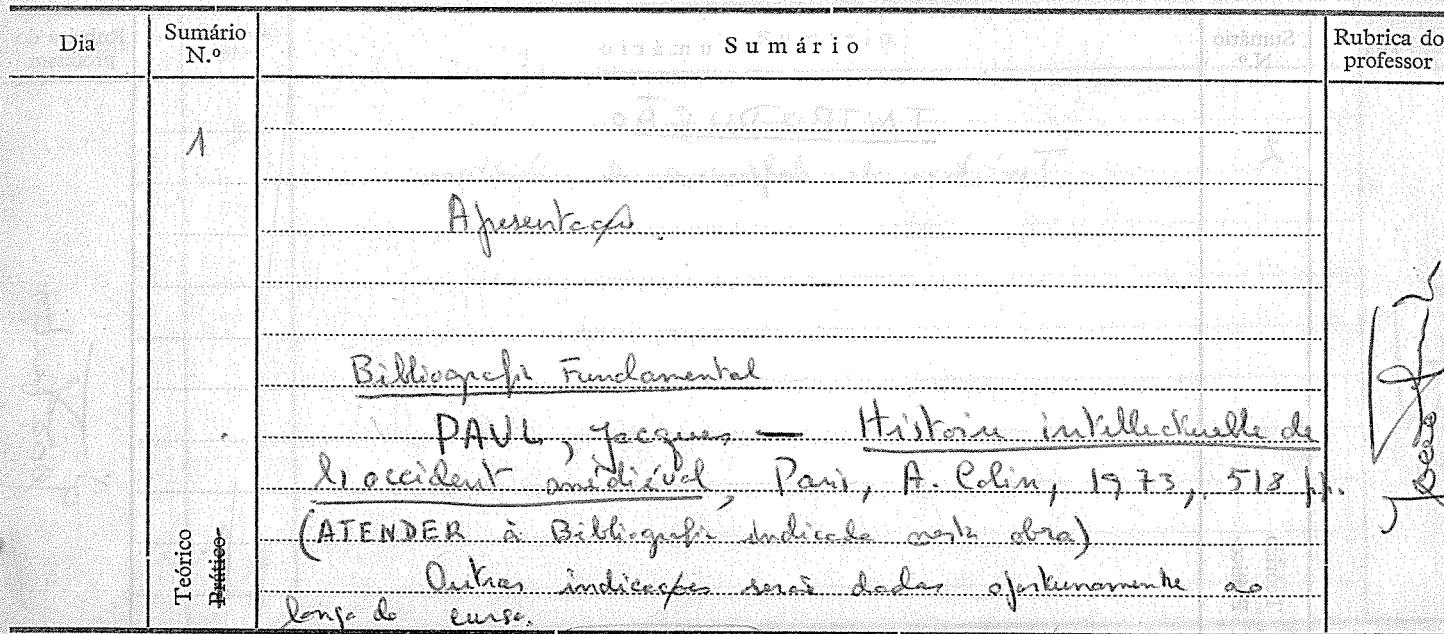 Dia
Sumário N.º
Sumário
Rubrica do professor
1
Apresentação.
Bibliografia Fundamental
PAUL, Jacques — Histoire intellectuelle de
l'occident médiéval, Paris, A. Colin, 1973, 518 pp.
(ATENDER à Bibliografia indicada nesta obra)
Outras indicações serão dadas oportunamente ao
longo do curso.
Teórico
Prático